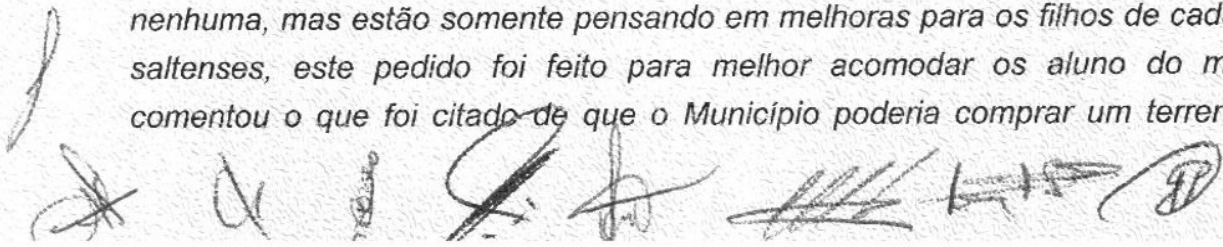 nenhuma, mas estão somente pensando em melhoras para os filhos de cad
saltenses, este pedido foi feito para melhor acomodar os aluno do m
comentou o que foi citado de que o Município poderia comprar um terren